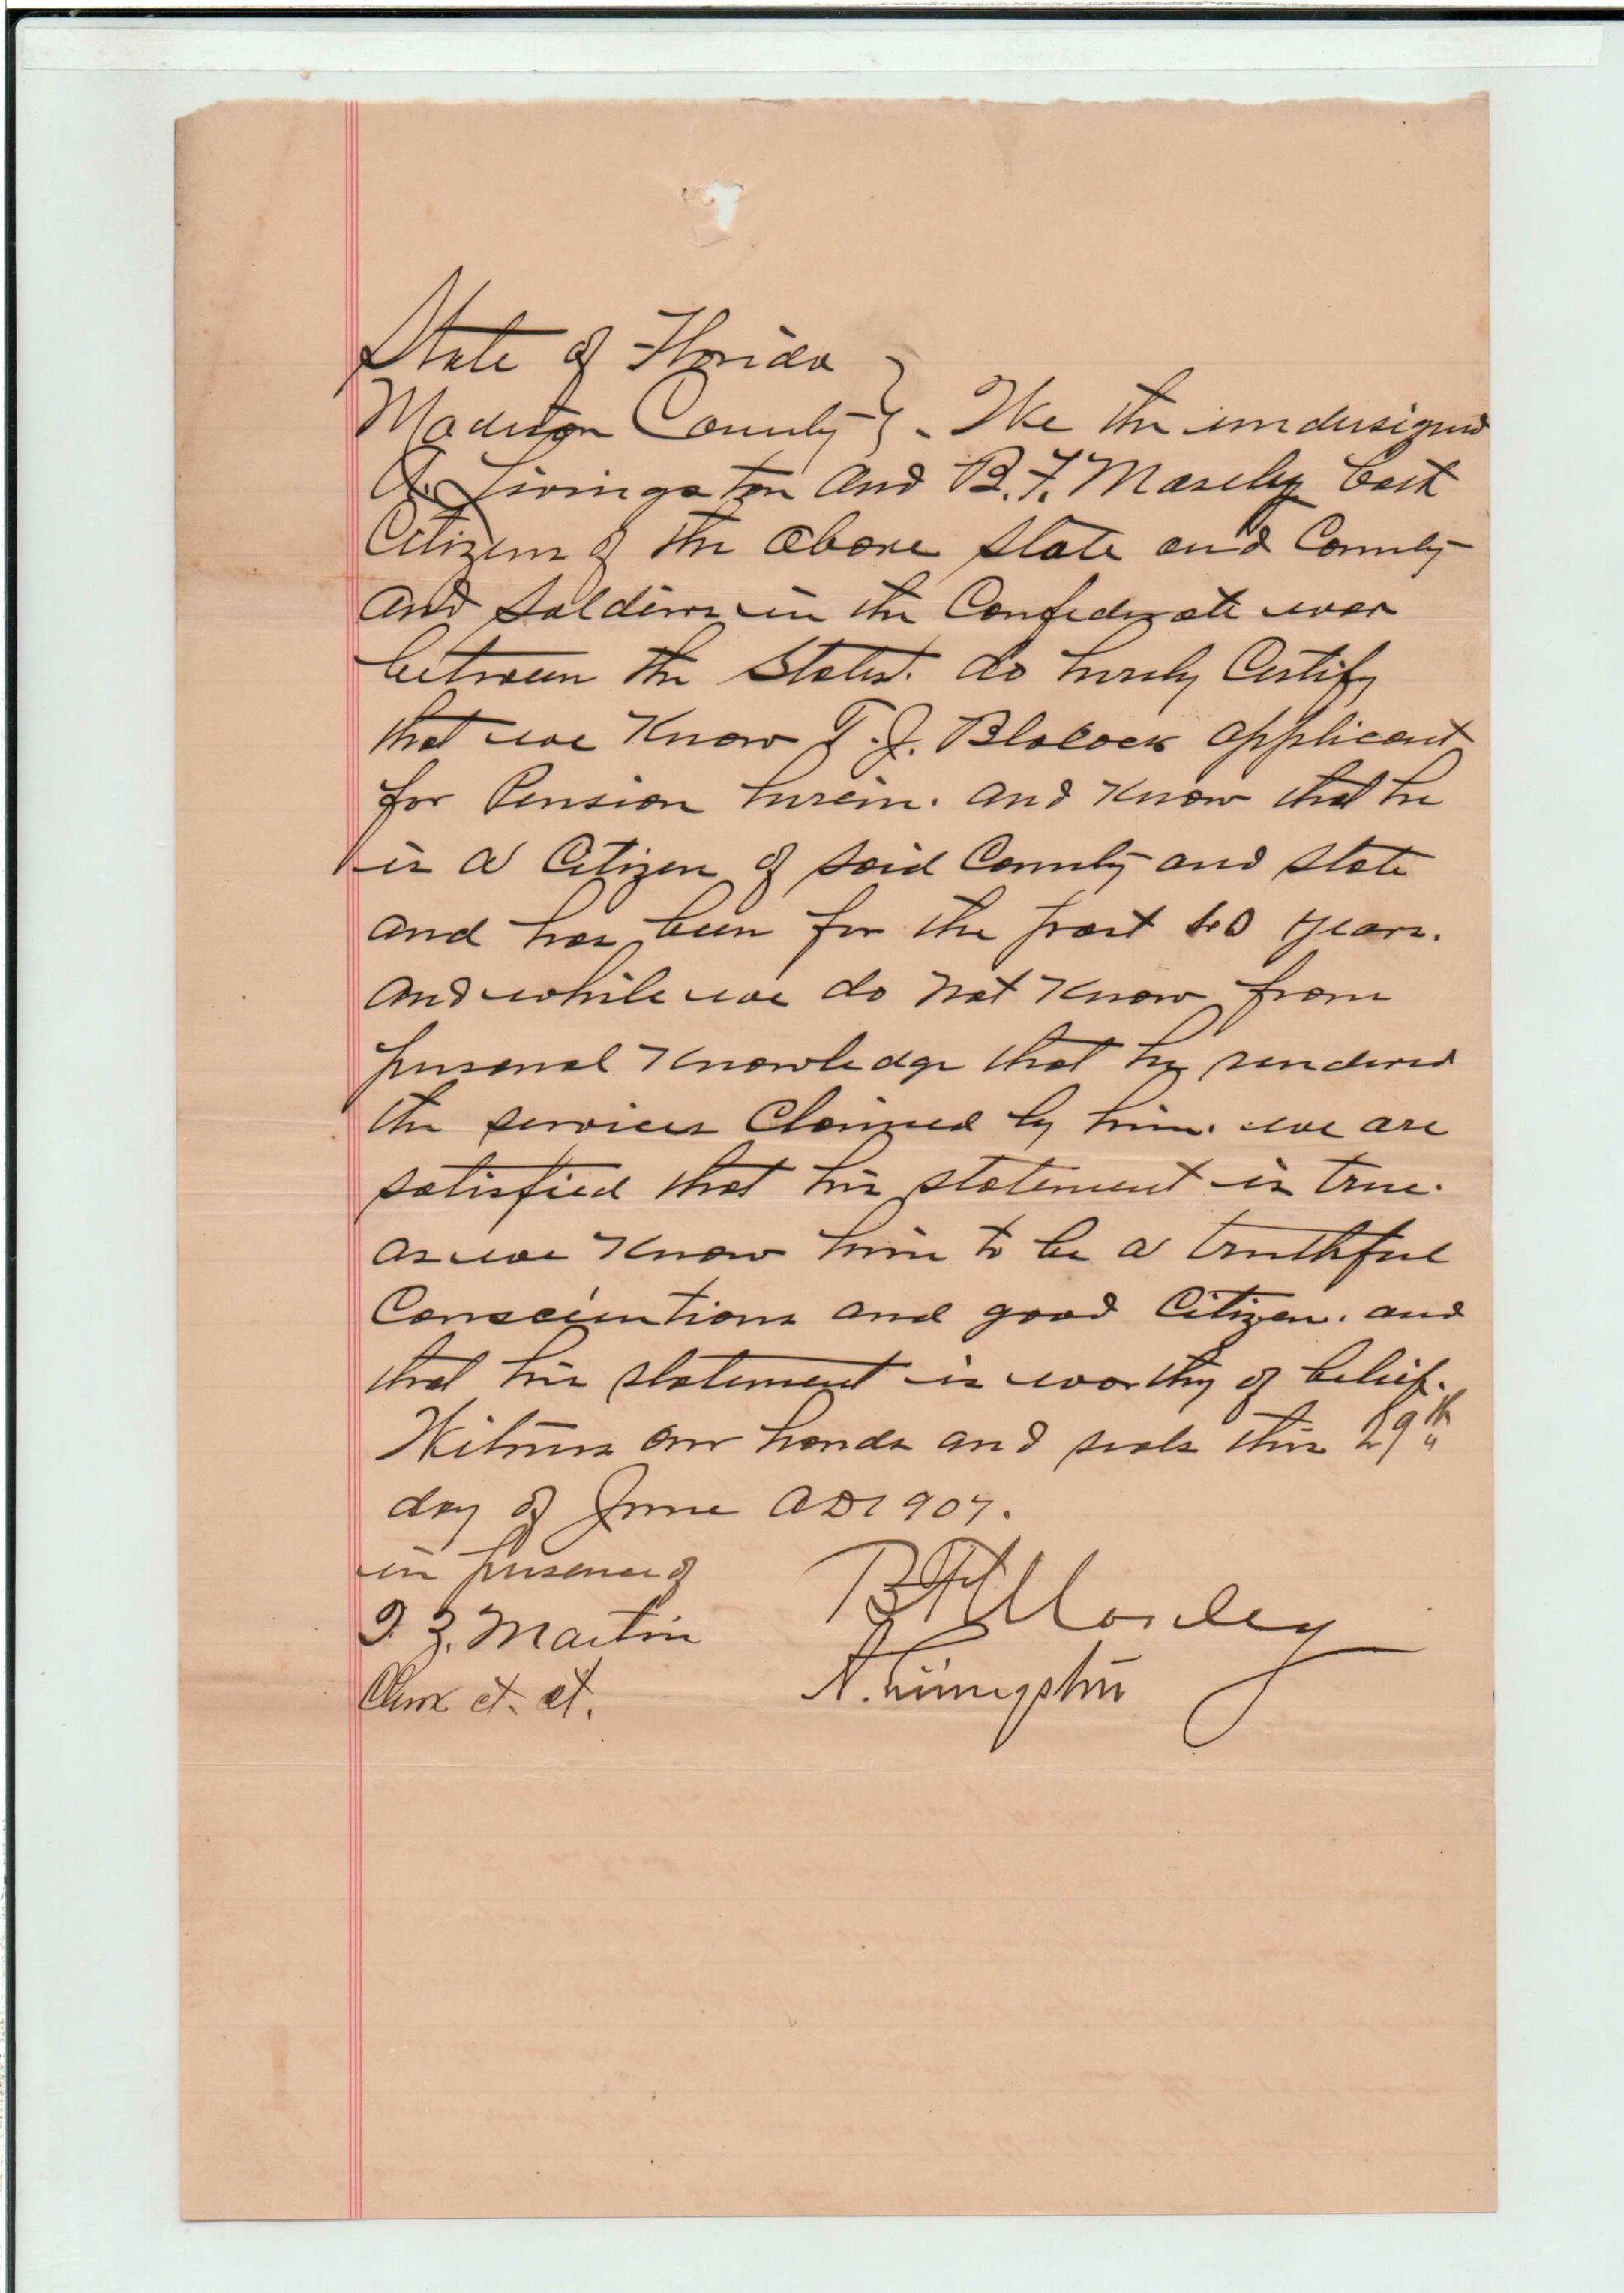 State of Florida
Madison County } - We the undersigned
A. Livingston and B. F. Mosely both
Citizens of the above State and County
and soldiers in the Confederate war
between the States. do hereby Certify
that we know T. J. Blalock applicant
for Pension herein. and know that he
is a Citizen of said County and State
and has been for the past 40 years.
and while we do not know from
personal knowledge that he rendered
the services Claimed by him. we are
satisfied that his statement is true.
as we know him to be a truthful
Conscientious and good Citizen. and
that his statement is worthy of belief.
Witness our hands and seals this 29th
day of June AD 1907.
in presence of
B F Mosley
T. Z. Martin
A. Livingston
Clerk ct. ct.